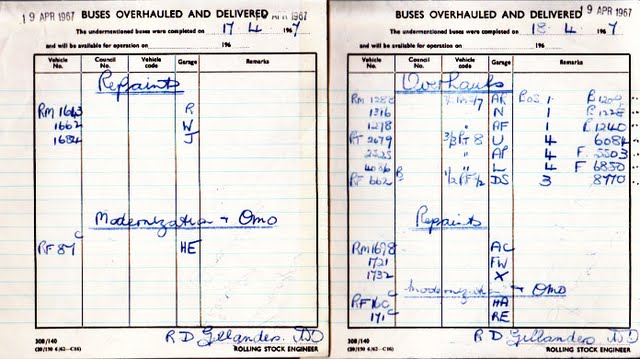 19 APR 1967
APR 1967
BUSES OVERHAULED AND DELIVERED
The undermentioned buses were completed on 17 4 1967
and will be available for operation on 196
Vehicle No. Council No. Vehicle code Garage Remarks
Repaints
RM 1643 R
1662 W
1684 J
Modernization + Omo
RF 87 C HE
R D Gillanders
308/140
ROLLING STOCK ENGINEER
19 APR 1967
BUSES OVERHAULED AND DELIVERED
The undermentioned buses were completed on 18 4 1967
and will be available for operation on 196
Vehicle No. Council No. Vehicle code Garage Remarks
Overhauls
RM 1288 AK 1 B 1200
1316 N 1 B 1228
1298 " AF 1 B 1240
RT 2679 U 4 6084
2525 " AP 4 F 5503
4036 " L 4 F 6850
RF 662 B DS 3 8770
Repaints
RM1698 AC
1721 FW
1732 X
Modernization + Omo
RF 160 C HA
171 C RE
R D Gillanders
308/140
ROLLING STOCK ENGINEER